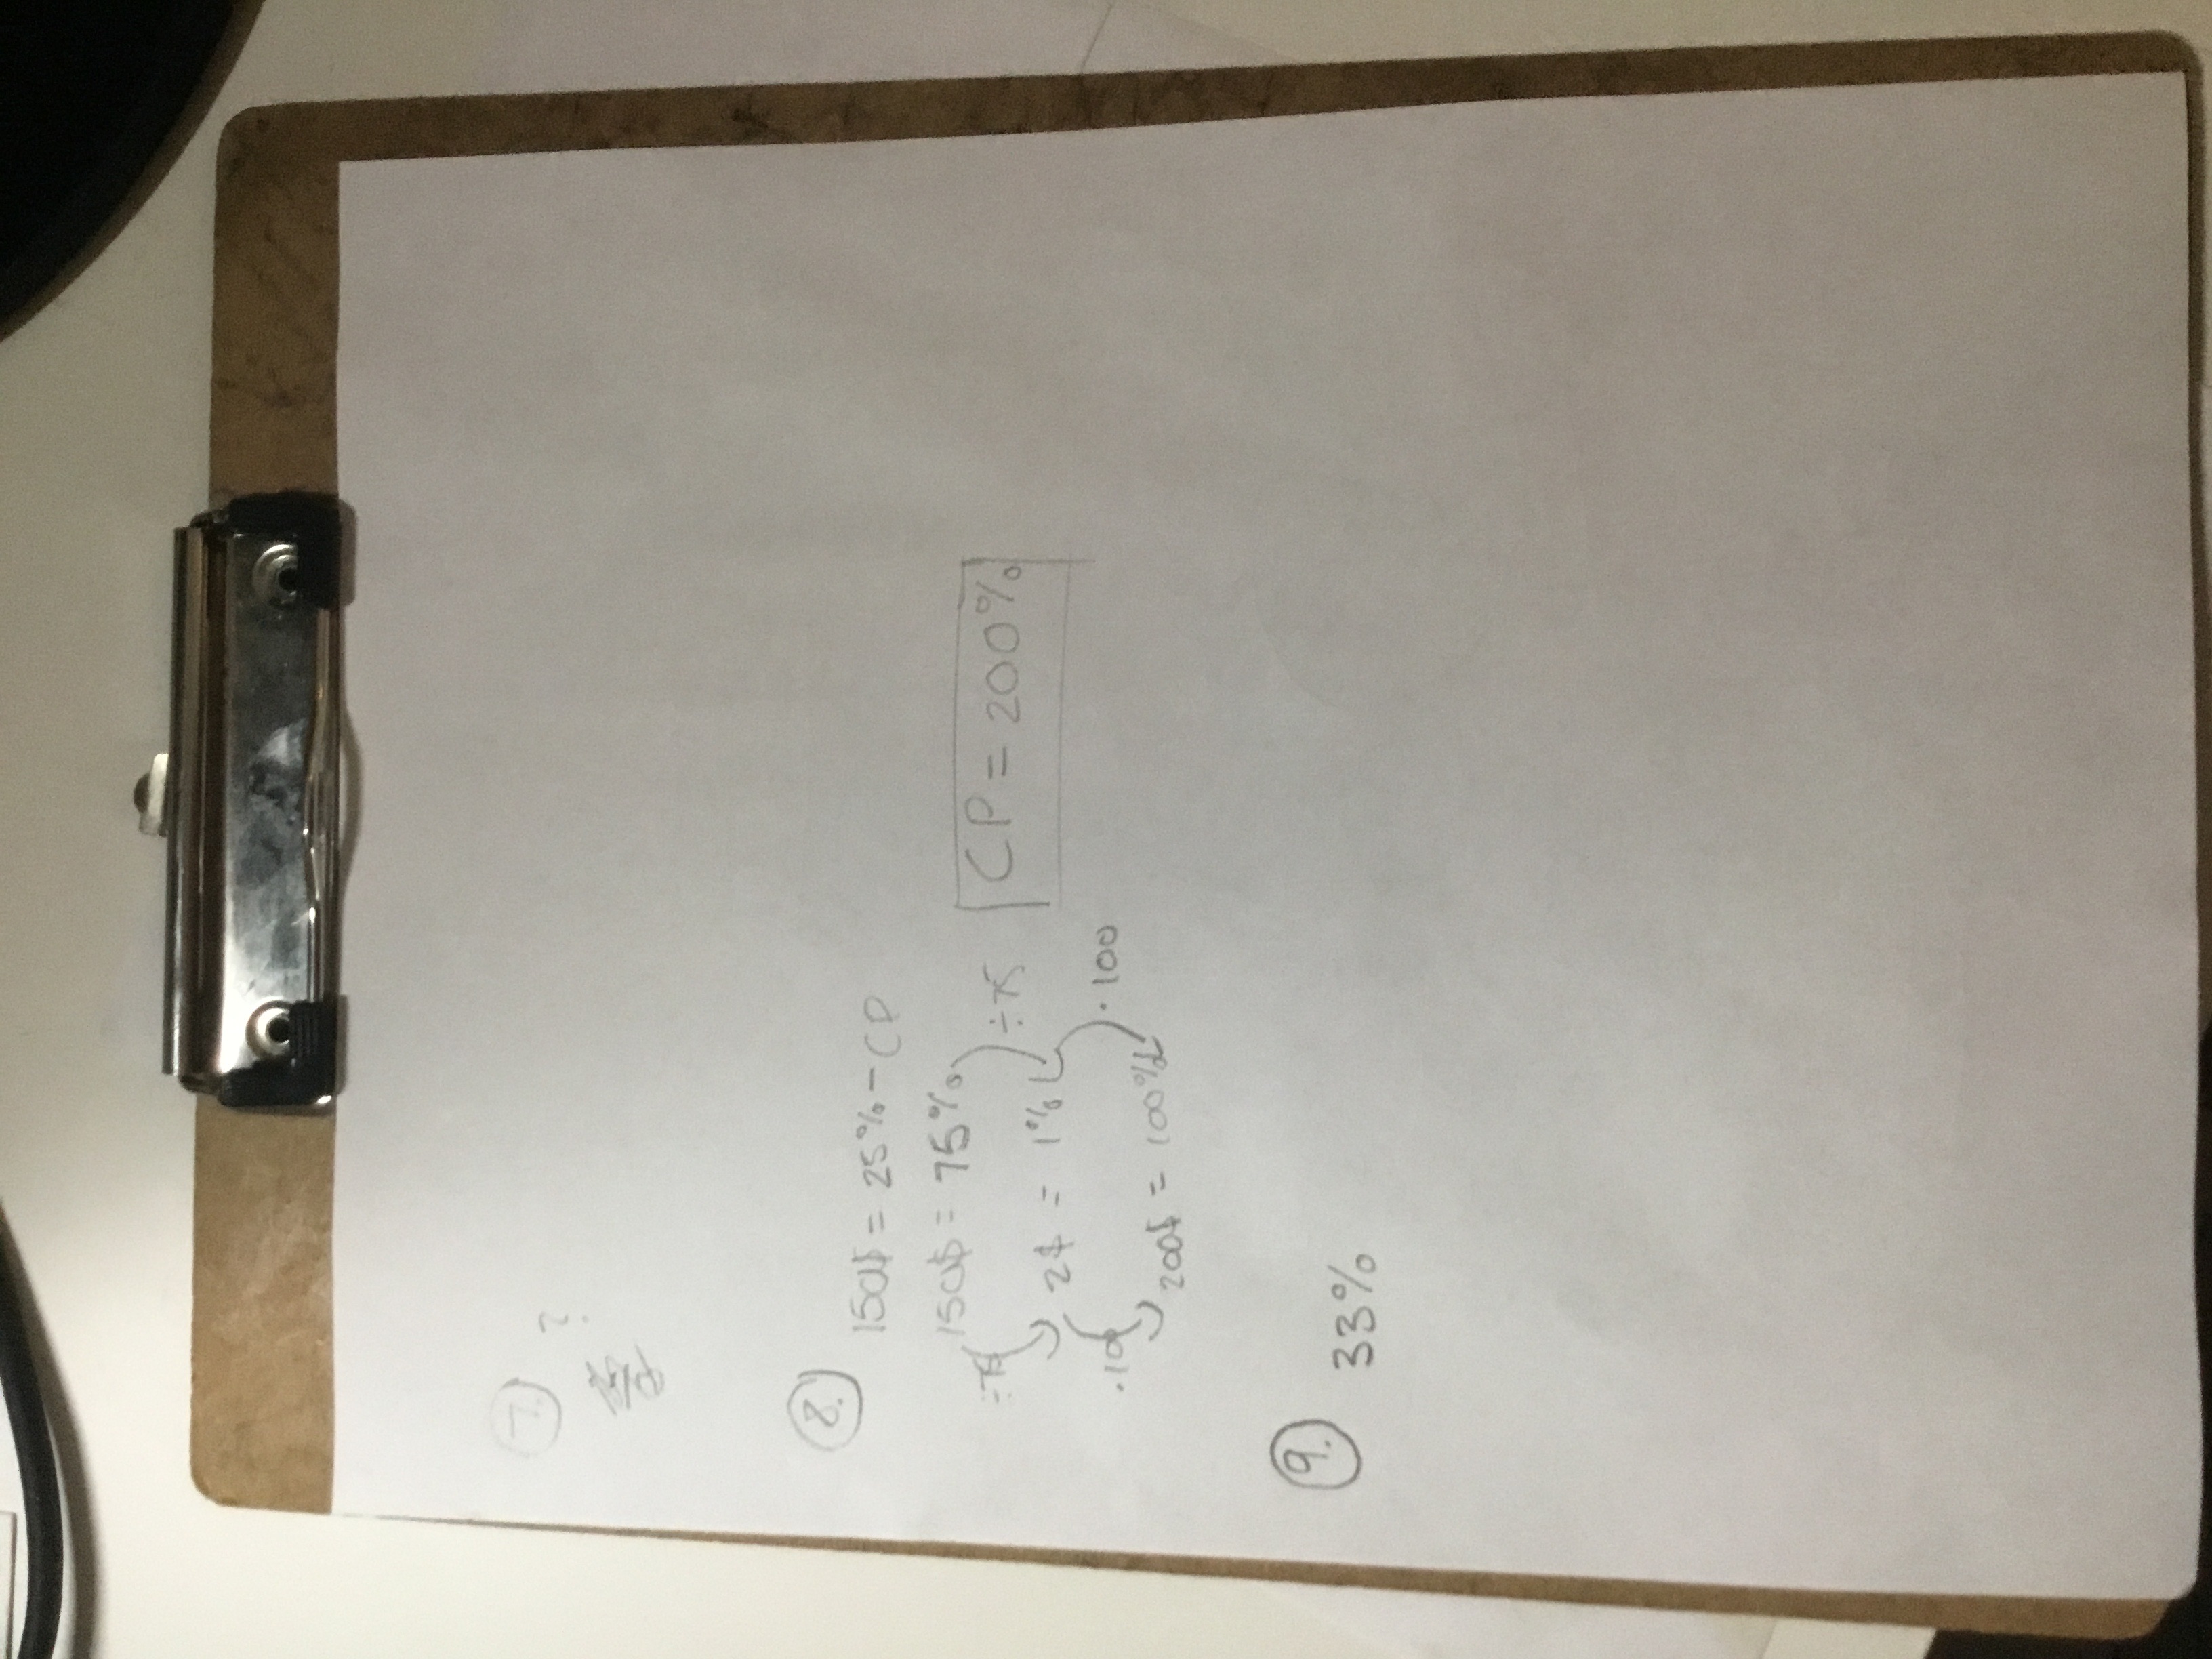 7. ?
8.
150$ = 25% - CP
150$ = 75%
÷75 ÷75
2$ = 1%
·100
200$ = 100%
CP = 200%
9.
33%